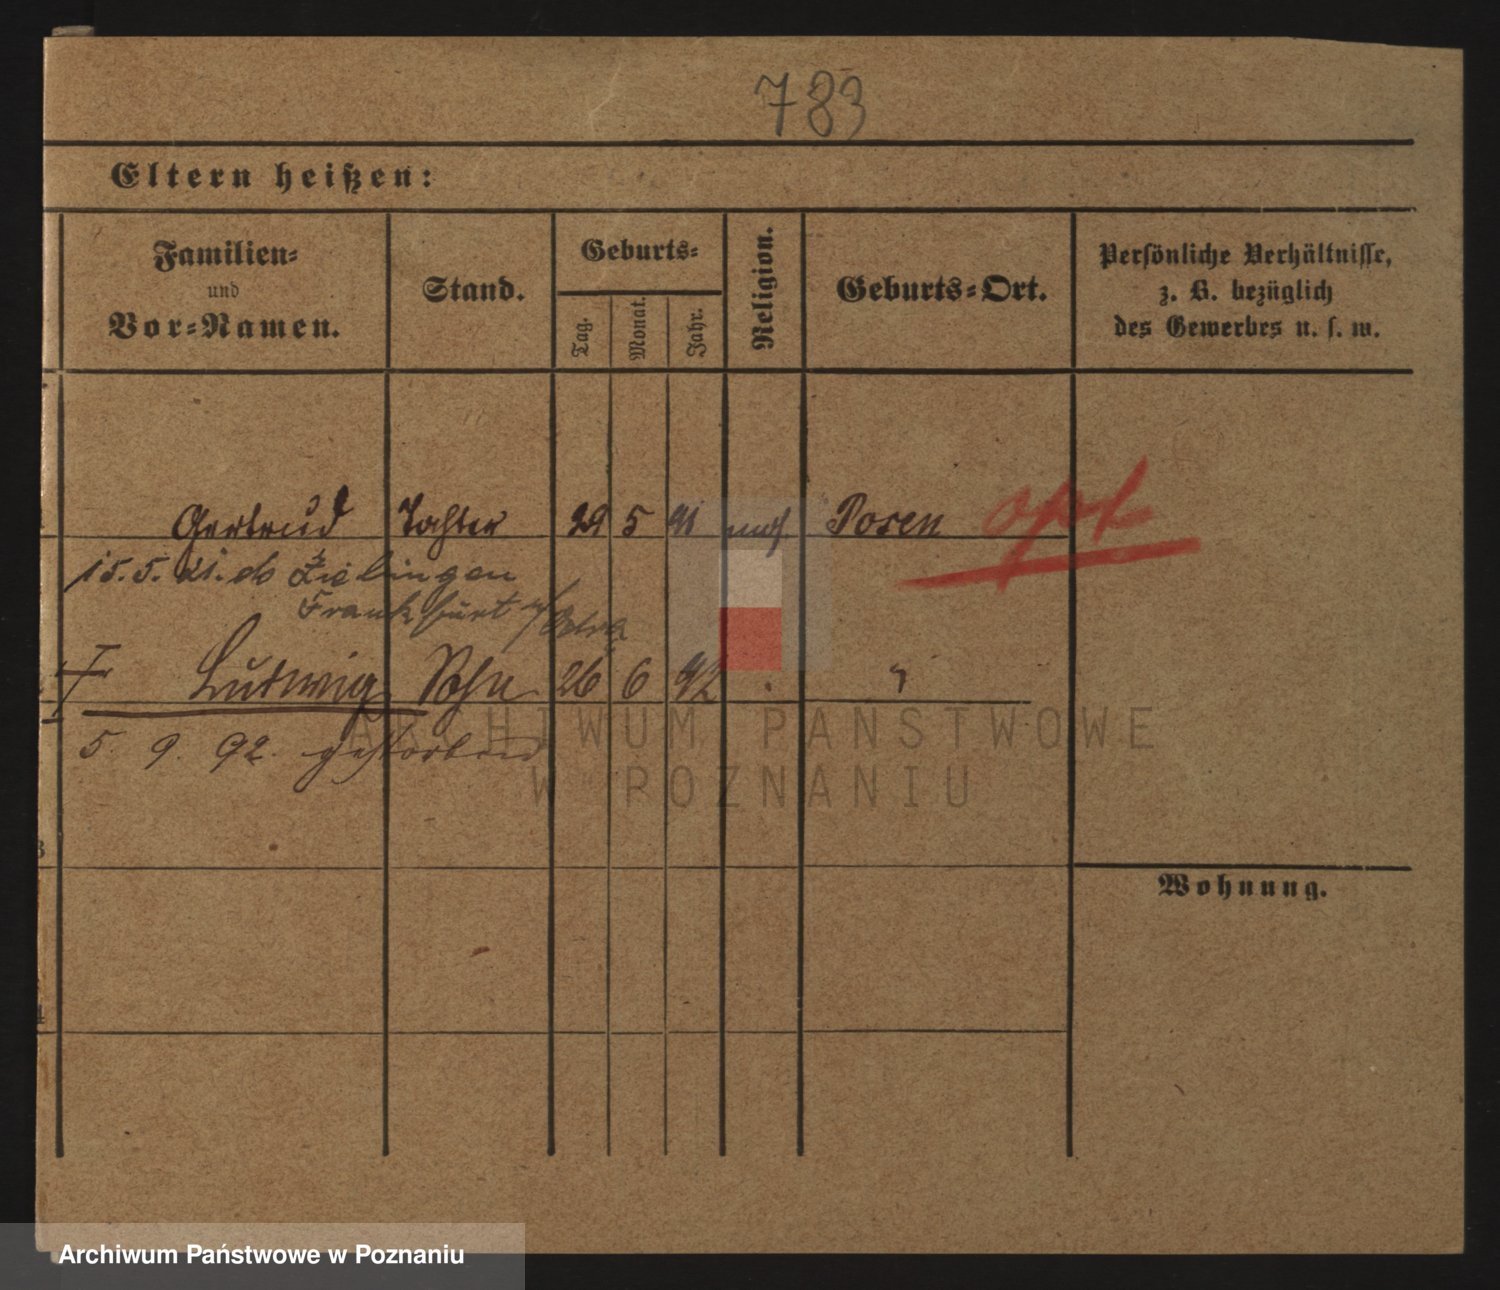 783
Eltern heißen:
Familien-
und
Vor-Namen.
Stand.
Geburts-
Tag.
Monat.
Jahr.
Religion.
Geburts-Ort.
Persönliche Verhältnisse,
z. B. bezüglich
des Gewerbes u. s. w.
Gertrud Tochter 29 5 91 Posen
15.5.21. Zielingen
Frankfurt
Ludwig Sohn 26 6 92 "
5. 9. 92. gestorben
ARCHIWUM PAŃSTWOWE
W POZNANIU
Wohnung.
Archiwum Państwowe w Poznaniu